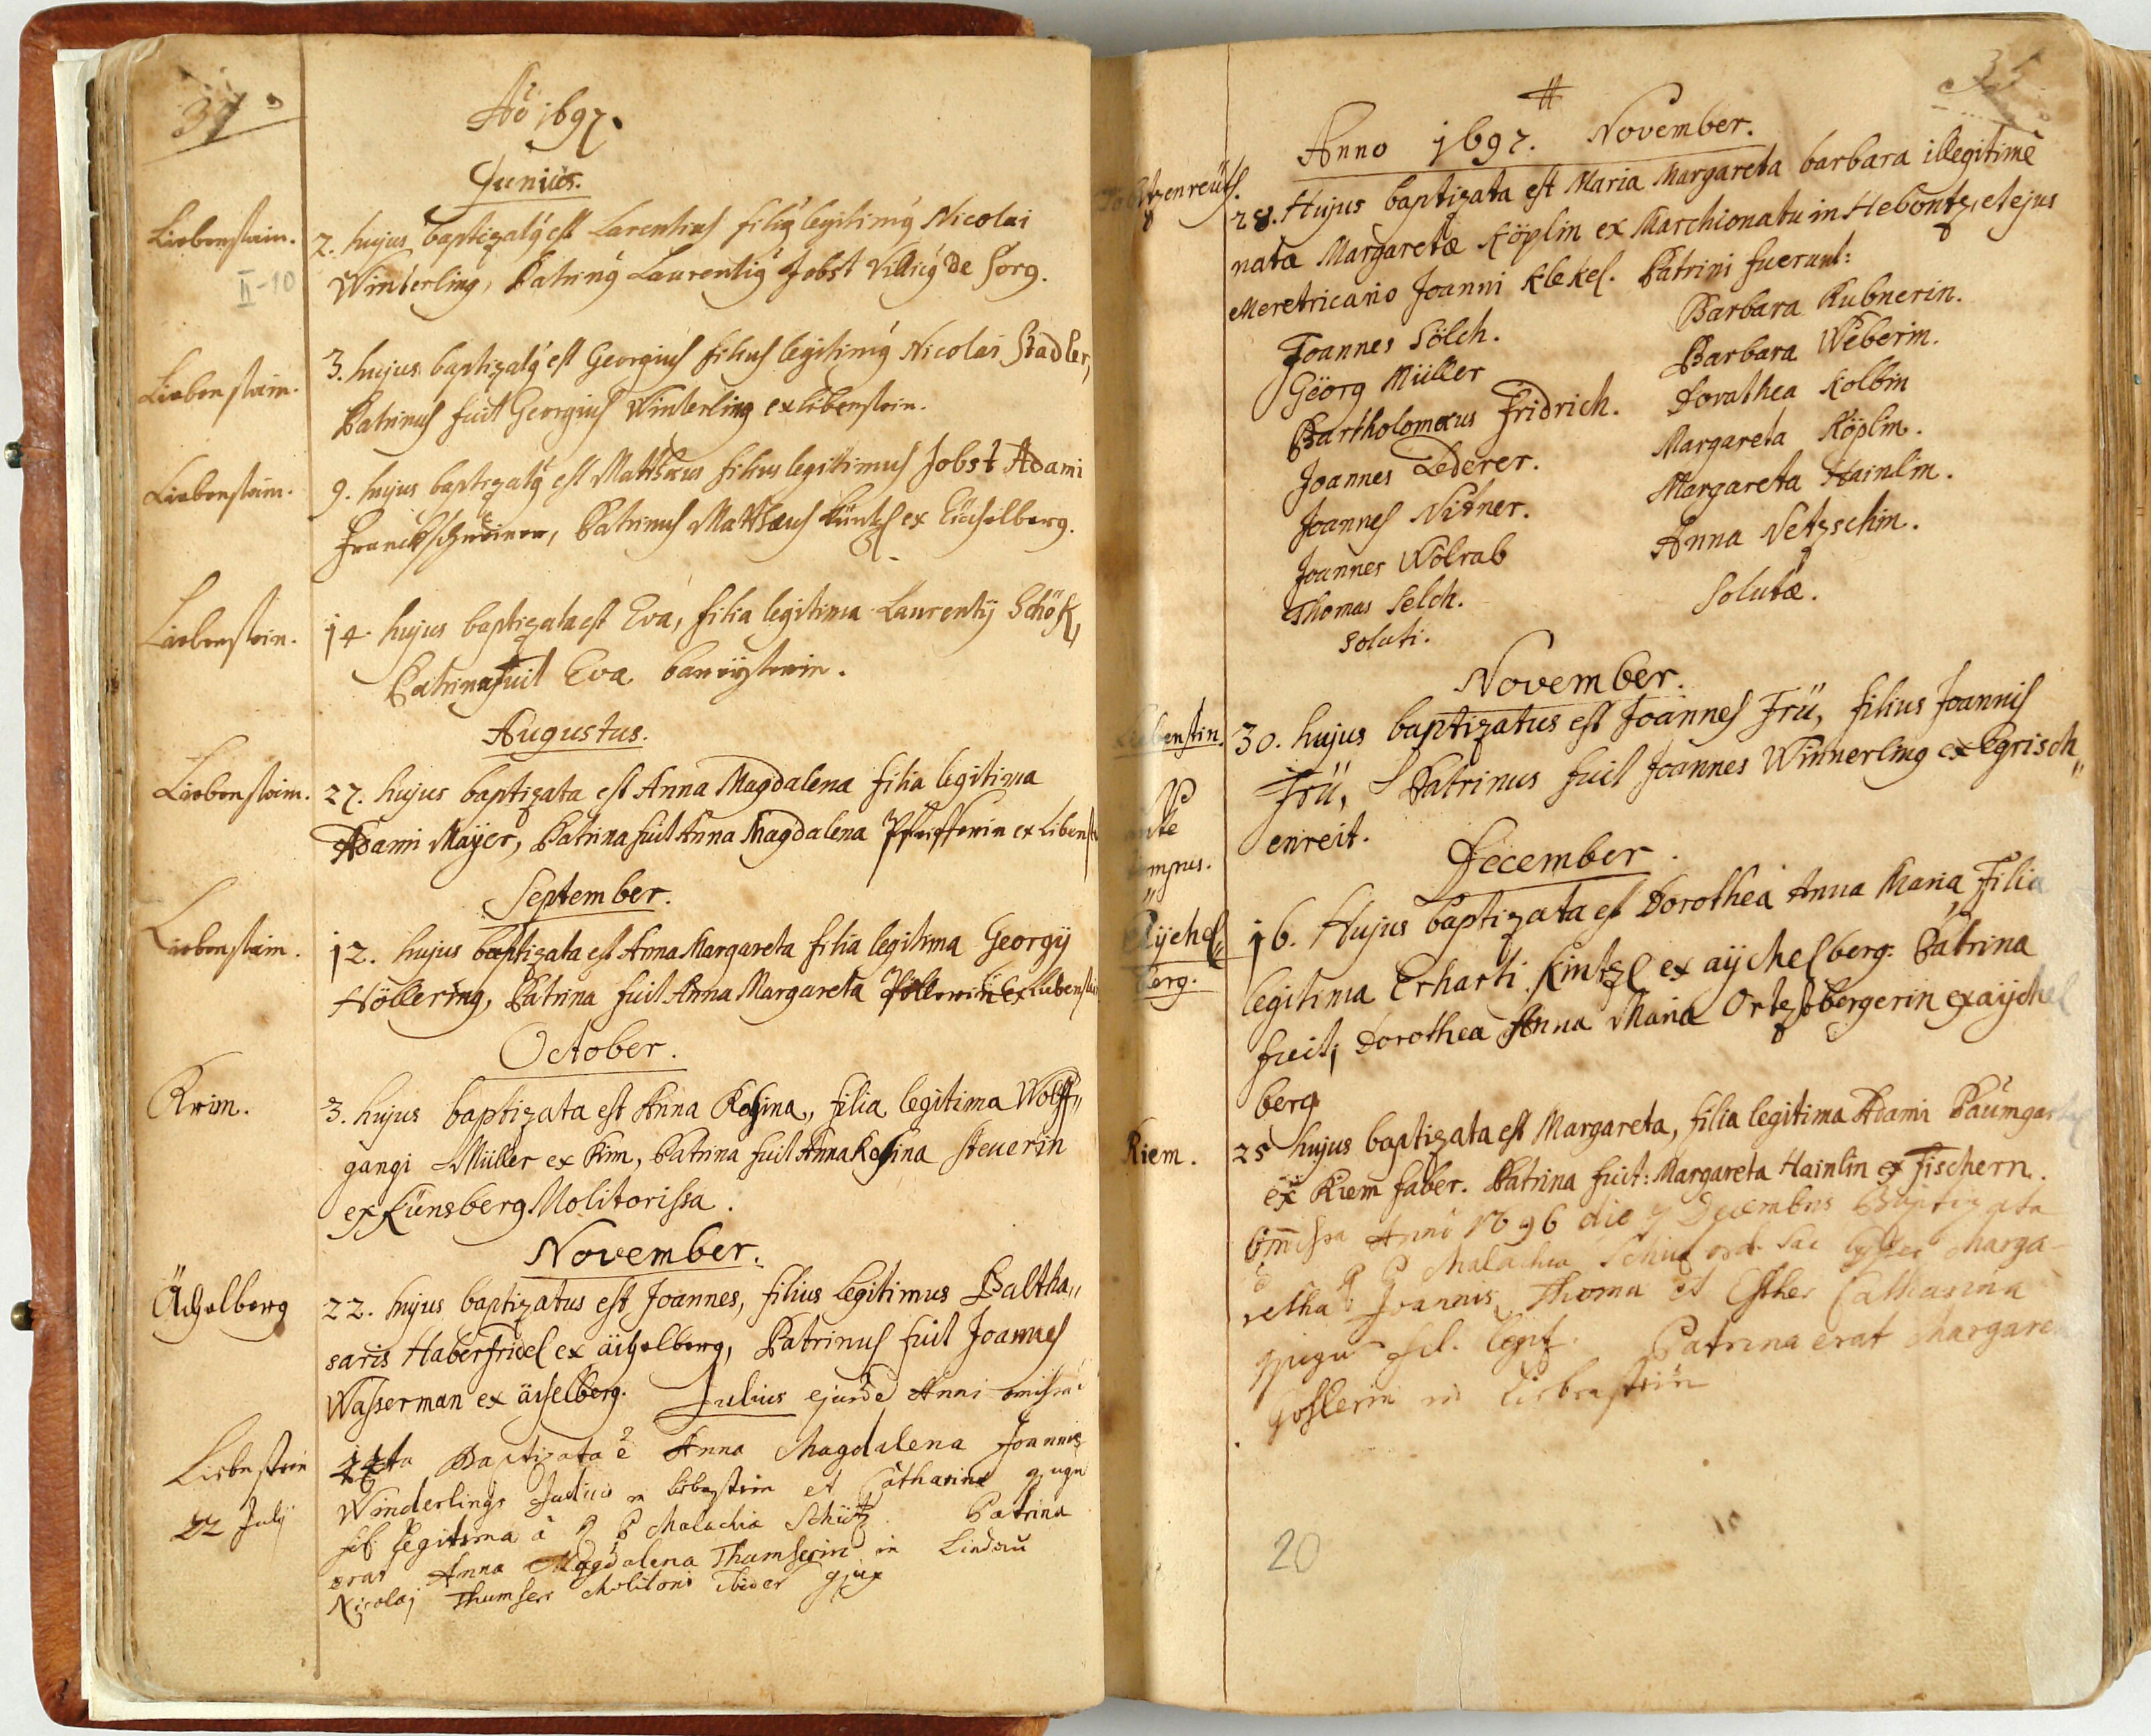 34
Aō 1697.
Junius.
Liebenstain.
2. hujus baptizatq est Larentius filiq legitimq Nicolai
II-10
Winterling, Patrinq Laurentiq Jobst Villicq de Sorg.
Liebenstain.
3. hujus baptizatq est Georgius filius legitimq Nicolai Stadler,
Patrinus fuit Georgius Winterling ex libenstein.
Liebenstain.
9. hujus baptizatq est Matthæus filius legitimus Jobst Adami
Patrinus Matthæus ex
Liebenstein.
14. hujus baptizata est Eva, filia legitima Laurentij Schök,
Patrina fuit Eva
Augustus.
Liebenstain.
27. hujus baptizata est Anna Magdalena filia legitima
Adami Mayer, Patrina fuit Anna Magdalena Pfeifferin ex Libenst
September.
Liebenstain.
12. hujus baptizata est Anna Margareta filia legitima Georgij
Höllering, Patrina fuit Anna Margareta ex Liebenst
October.
Krim.
3. hujus baptizata est Anna Rosina, filia legitima Wolff„
gangi Müller ex Kim, Patrina fuit Anna Rosina steuerin
ex Künsberg Molitorissa.
November.
Ächelberg
22. hujus baptizatus est Joannes, filius legitimus Baltha„
saris Haberfridel ex ächelberg, Patrinus fuit Joannes
Wasserman ex ächelberg. Julius ejusdē Anni omissa
Liebnstein
Baptizata ē Anna Magdalena Joannis
22 July
Winderlings Judicis in et Catharina
fil. legitima à P Malachia Schütz. Patrina
erat Anna Magdalena Thumserin in Lindau
Nicolaj Thumser Molitoris
35
Anno 1697. November.
28. Hujus baptizata est Maria Margareta barbara illegitimè
nata Margaretæ Köplin ex Marchionatu in Hebontz, et ejus
Meretricario Joanni Klekel. Patrini fuerunt:
Joannes Sölch. Barbara Rubnerin.
Geörg Müller Barbara Weberin.
Bartholomæus Fridrich. Dorathea Kolbin
Joannes Lederer. Margareta Köplin.
Joannes Vitner. Margareta Hainlin.
Joannes Wolrab Anna Netzschin.
Thomas Selch. Solutæ.
Soluti.
November.
30. hujus baptizatus est Joannes Frü, filius Joannis
Frü, Patrinus fuit Joannes Winnerling ex Egrisch„
enreit.
December.
Aychel„
berg.
16. Hujus baptizata est Dorothea Anna Maria Filia
legitima Erharti Kintzl ex aychelberg: Patrina
fuit; Dorothea Anna Maria Ortzbergerin ex aychel
berg
Kiem.
25 hujus baptizata est Margareta, filia legitima Adami
ex Kiem faber. Patrina fuit: Margareta Hainlin ex Fischern.
Omissa Anno 1696 die 7 Decembris Baptizata
ē P Malachia ord. Sac Marga-
retha Joannis Thoma et Esther Catharina
fil. legit. Patrina erat Margare
Goslerin in Liebenstein
20